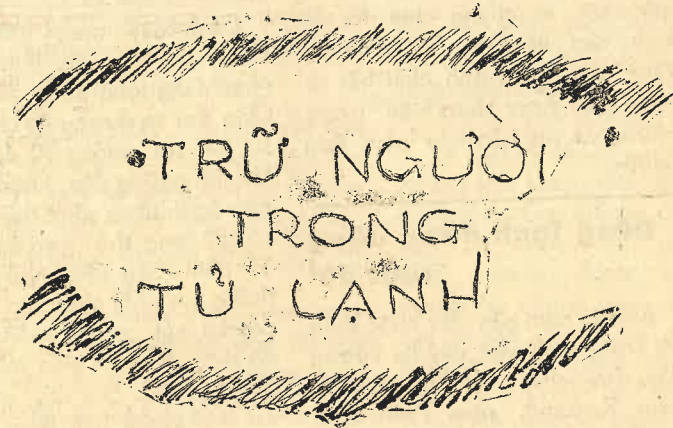 TRỮ NGƯỜI
TRONG
TỦ LẠNH